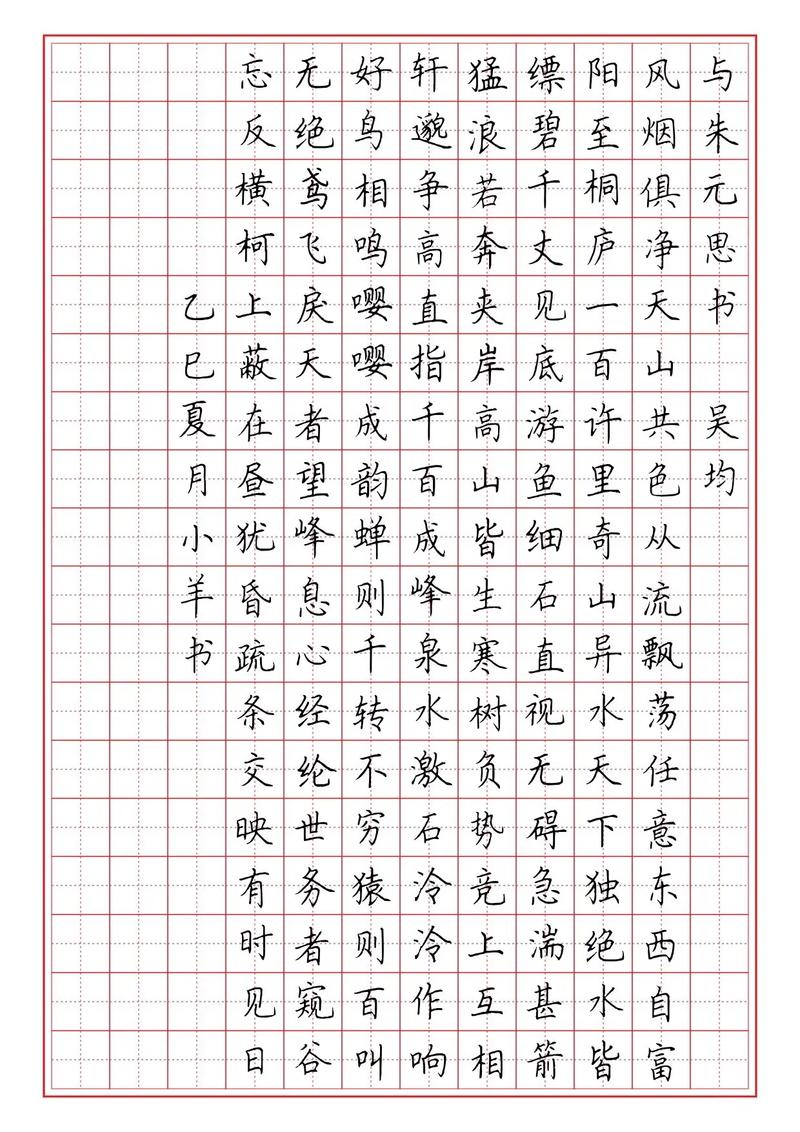 与朱元思书 吴均
风烟俱净天山共色从流飘荡任意东西自富
阳至桐庐一百许里奇山异水天下独绝水皆
缥碧千丈见底游鱼细石直视无碍急湍甚箭
猛浪若奔夹岸高山皆生寒树负势竞上互相
轩邈争高直指千百成峰泉水激石泠泠作响
好鸟相鸣嘤嘤成韵蝉则千转不穷猿则百叫
无绝鸢飞戾天者望峰息心经纶世务者窥谷
忘反横柯上蔽在昼犹昏疏条交映有时见日
乙巳夏月小羊书